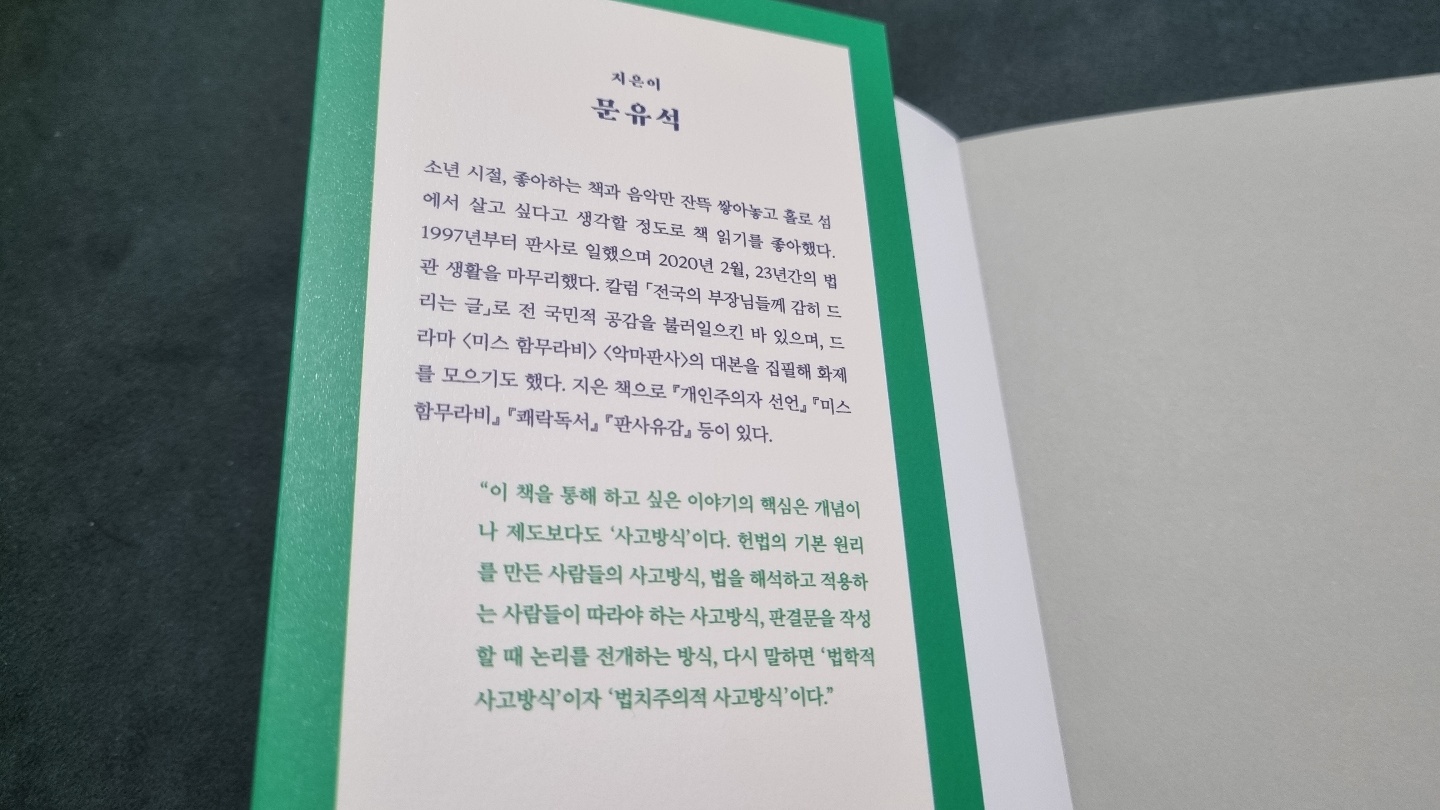 지은이
문유석
소년 시절, 좋아하는 책과 음악만 잔뜩 쌓아놓고 홀로 섬
에서 살고 싶다고 생각할 정도로 책 읽기를 좋아했다.
1997년부터 판사로 일했으며 2020년 2월, 23년간의 법
관 생활을 마무리했다. 칼럼 「전국의 부장님들께 감히 드
리는 글」로 전 국민적 공감을 불러일으킨 바 있으며, 드
라마 〈미스 함무라비〉 〈악마판사〉의 대본을 집필해 화제
를 모으기도 했다. 지은 책으로 『개인주의자 선언』 『미스
함무라비』 『쾌락독서』 『판사유감』 등이 있다.
“이 책을 통해 하고 싶은 이야기의 핵심은 개념이
나 제도보다도 ‘사고방식’이다. 헌법의 기본 원리
를 만든 사람들의 사고방식, 법을 해석하고 적용하
는 사람들이 따라야 하는 사고방식, 판결문을 작성
할 때 논리를 전개하는 방식, 다시 말하면 ‘법학적
사고방식’이자 ‘법치주의적 사고방식’이다.”